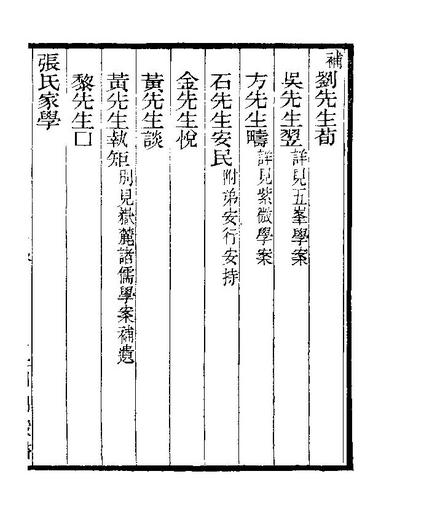 補劉先生荀
吳先生翌詳見五峯學案
方先生疇詳見紫微學案
石先生安民附弟安行安持
金先生悅
黃先生談
黃先生執矩別見嶽麓諸儒學案補遺
黎先生囗
張氏家學